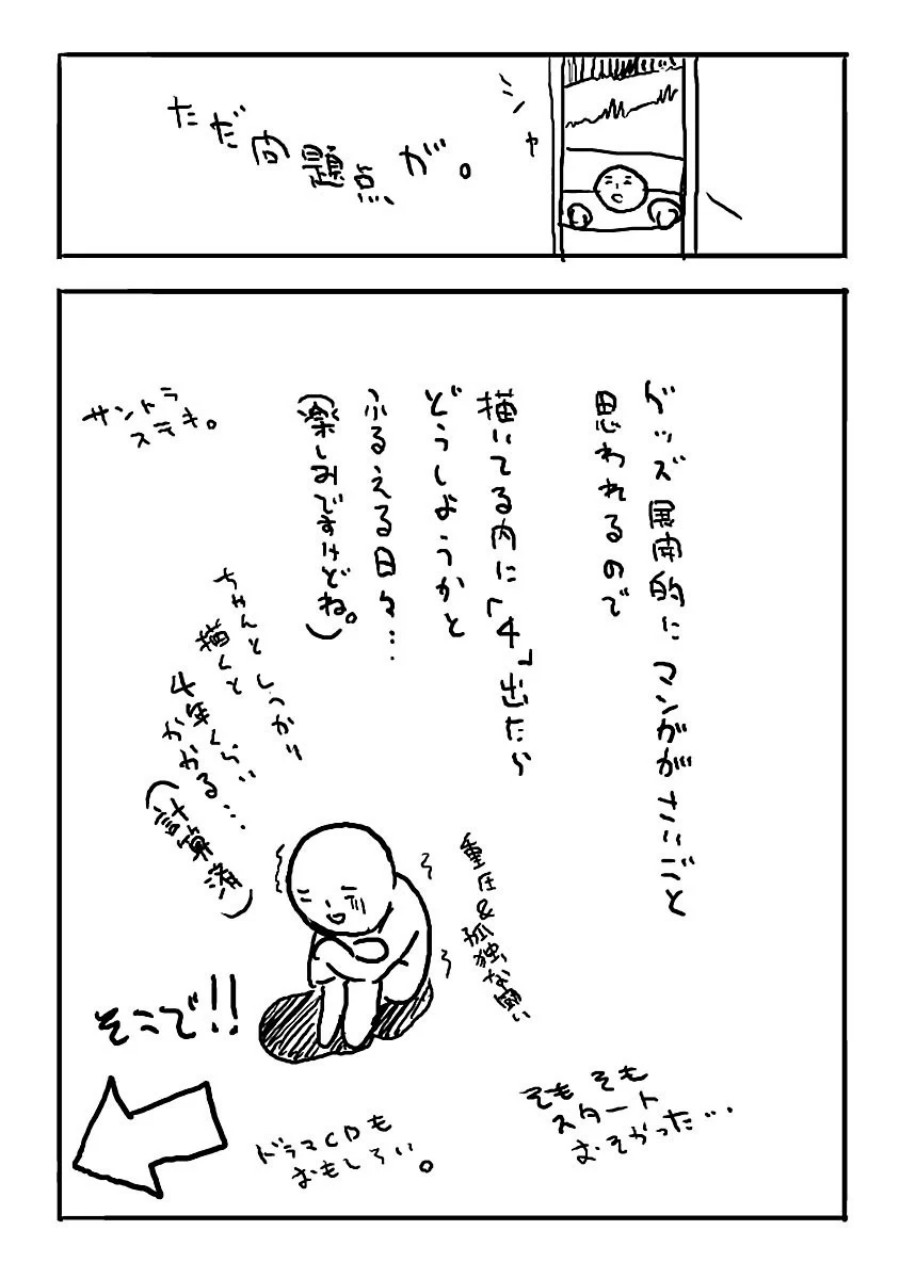 ただ問題点が。
シャ
グッズ展開的にマンガがさいごと
思われるので
描いてる内に「4」出たら
どうしようかと
ふるえる日々…
(楽しみですけどね。)
サントラ
ステキ。
ちゃんとしっかり
描くと
4年くらい
かかる…
(計算済)
重圧&孤独な闘い
そこで!!
そもそも
スタート
おそかった…
ドラマCDも
おもしろい。